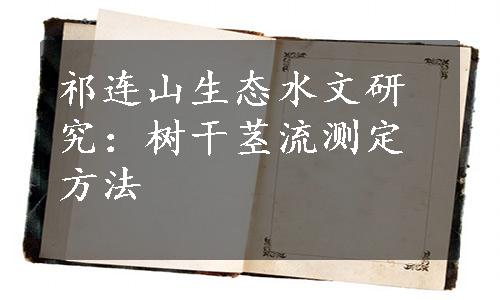 祁连山生态水文研
究：树干茎流测定
方法